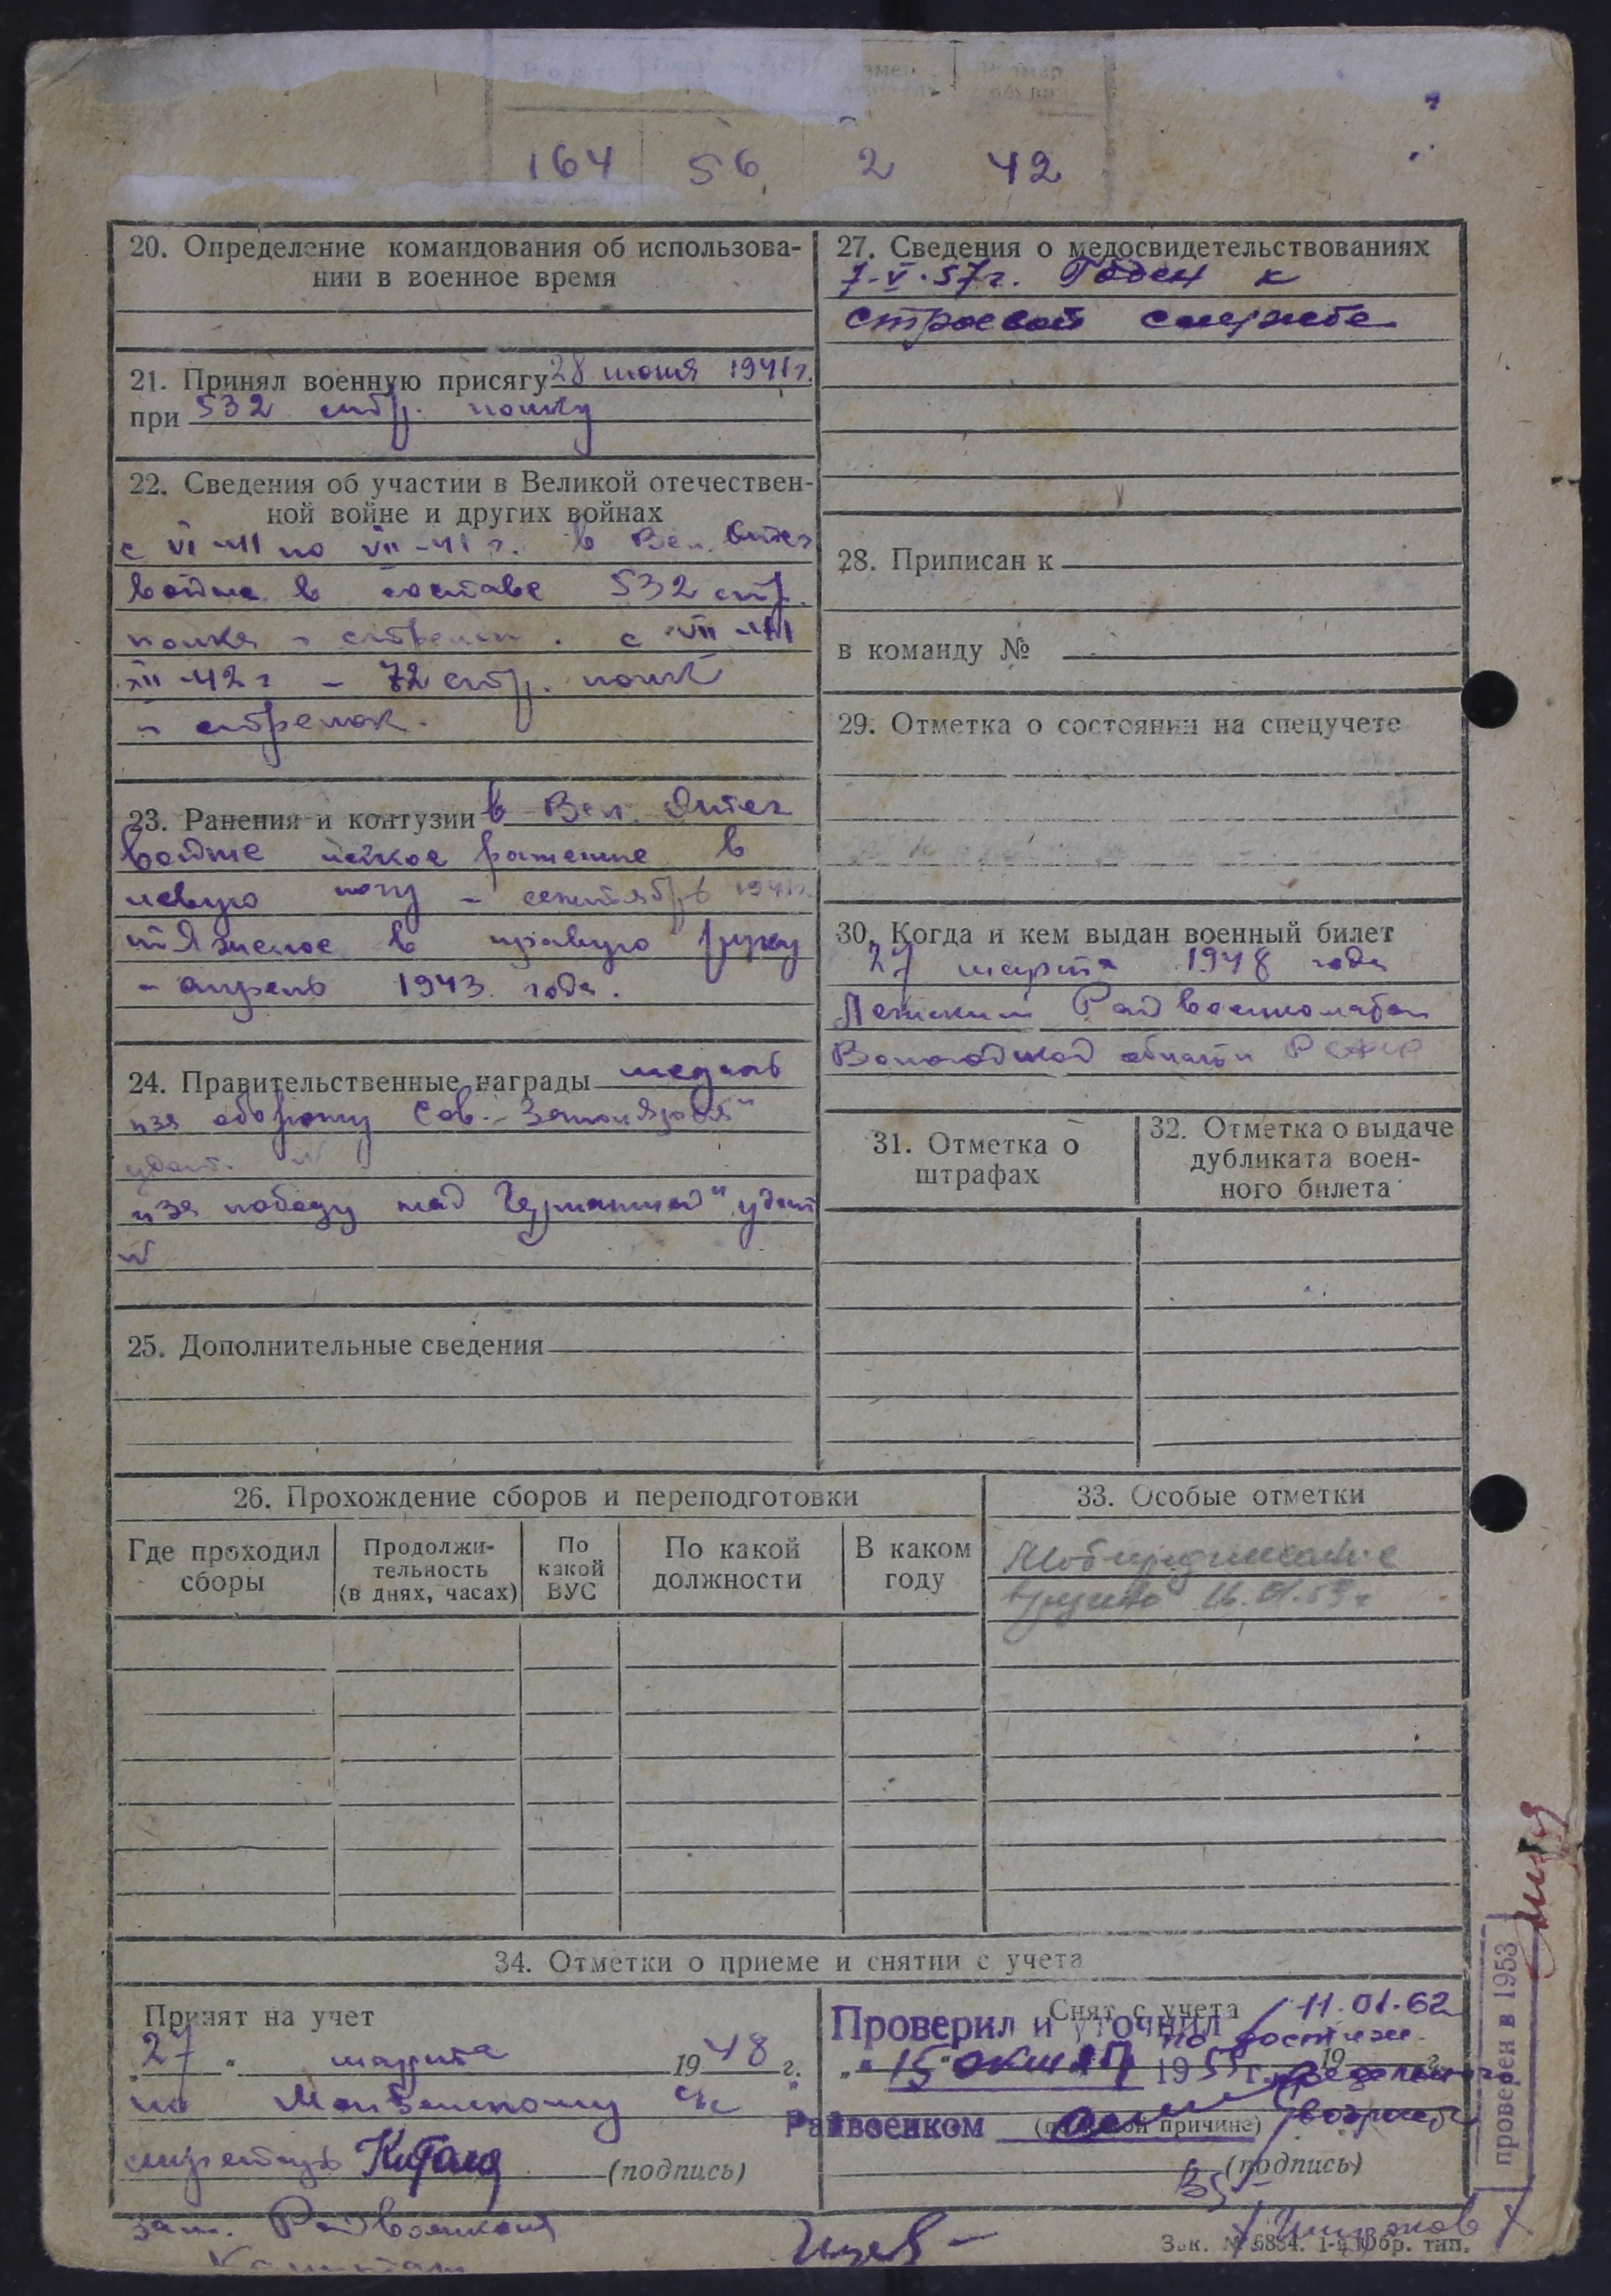 164 56 2 42
20. Определение командования об использова-
нии в военное время
21. Принял военную присягу 28 июня 1941 г.
при 532 стр. полку
22. Сведения об участии в Великой отечествен-
ной войне и других войнах
с VI-41 по VII-41 г. в Вел. Отеч
войне в составе 532 стр.
полка - стрелок. с VII-41
XII-42 г - 72 стр. полк
- стрелок.
23. Ранения и контузии в Вел. Отеч
войне легкое ранение в
левую ногу - сентябрь 1941 г.
тяжелое в правую руку
- апрель 1943 года.
24. Правительственные награды медаль
"за оборону Сов. Заполярья"
удост. №
"за победу над Германией" удост
№
25. Дополнительные сведения
27. Сведения о медосвидетельствованиях
7-V-57 г. Годен к
строевой службе
28. Приписан к
в команду №
29. Отметка о состоянии на спецучете
30. Когда и кем выдан военный билет
27 марта 1948 года
Райвоенкоматом
Вологодской области РСФСР
31. Отметка о
штрафах
32. Отметка о выдаче
дубликата воен-
ного билета
26. Прохождение сборов и переподготовки
Где проходил
сборы
Продолжи-
тельность
(в днях, часах)
По
какой
ВУС
По какой
должности
В каком
году
33. Особые отметки
Мобпредписание
вручено
34. Отметки о приеме и снятии с учета
Принят на учет
"27" марта 1948 г.
по с/с
(подпись)
зам. Райвоенкома
Капитан
Снят с учета 11.01.62
Проверил и уточнил по достиж.
"15" 195 г. предельного
19 г.
Райвоенком (по какой причине) возраста
(подпись)
проверен в 1953
Зак. № 6854. 1-я Обр. тип.